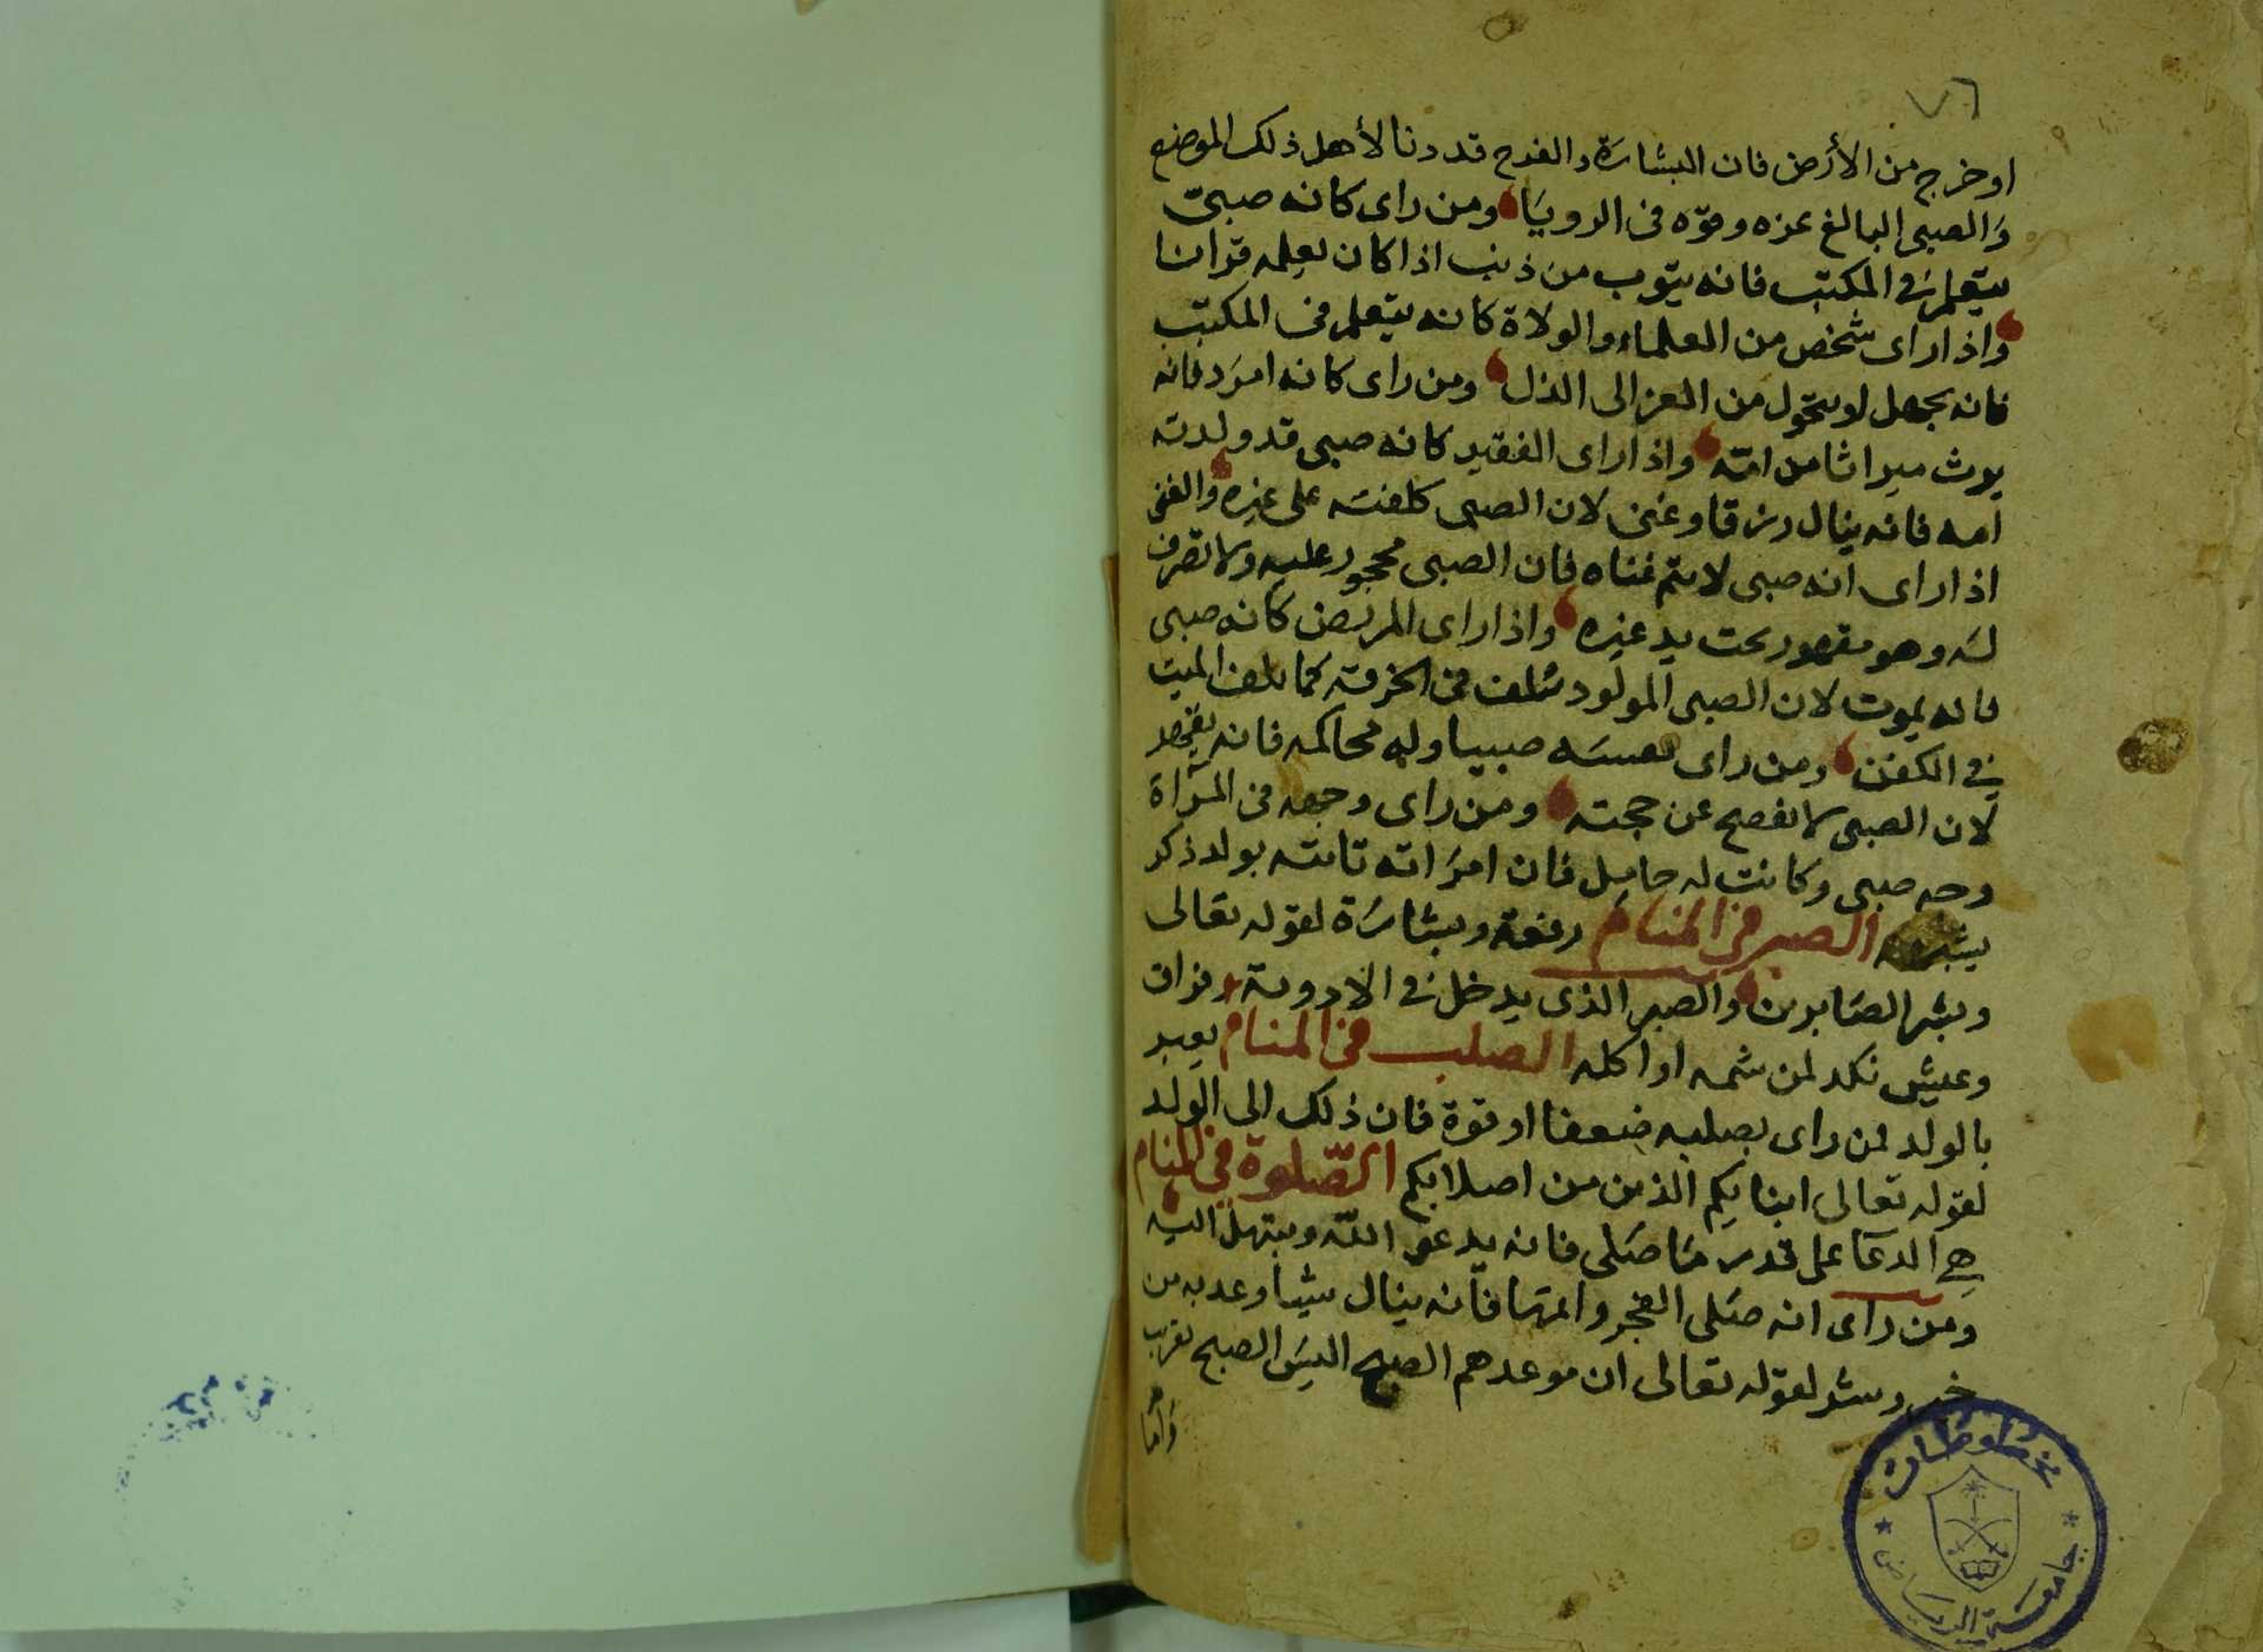 ٧٦
او خرج من الأرض فان البشارة والفرح قد دنا لأهل ذلك الموضع
والصبى البالغ عزه وقوّه فى الرويا ومن راى كانه صبىّ
يتعلم فى المكتب فانه يتوب من ذنب اذا كان يعلمه قرانا
واذا راى شخص من العلماء والولاة كانه يتعلم فى المكتب
فانه يجهل او يتحول من العز الى الذل ومن راى كانه امرد فانه
يرث ميراثا من امّه واذا راى الفقير كانه صبى قد ولدته
امه فانه ينال رزقا وغنى لان الصبى كلفته على غيره والغنى
اذا راى انه صبى لا يتم غناه فان الصبى محجور عليه ولا تصرف
له وهو مقهور تحت يد غيره واذا راى المريض كانه صبى
فانه يموت لان الصبى المولود يلف فى الخرقة كما يلف الميت
فى الكفن ومن راى نفسه صبيا وله محاكمه فانه يقهر
لان الصبى لا يفصح عن حجته ومن راى وجهه فى المرآة
وجه صبى وكانت له حامل فان امراته تاتيه بولد ذكر
يشبهه الصبر فى المنام رفعة وبشارة لقوله تعالى
وبشر الصابرين والصبر الذى يدخل فى الادوية فراق
وعيش نكد لمن شمه او اكله الصلب فى المنام يعبر
بالولد لمن راى بصلبه ضعفا او قوة فان ذلك الى الولد
لقوله تعالى ابنايكم الذين من اصلابكم الصّلوة فى المنام
هى الدعا على قدر ما صلى فانه يدعو الله ويبتهل اليه
ومن راى انه صلى الفجر واتمها فانه ينال شيا وعد به من
خير وشر لقوله تعالى ان موعدهم الصبح اليس الصبح بقريب
وأما
مخطوطات
جامعة الرياض